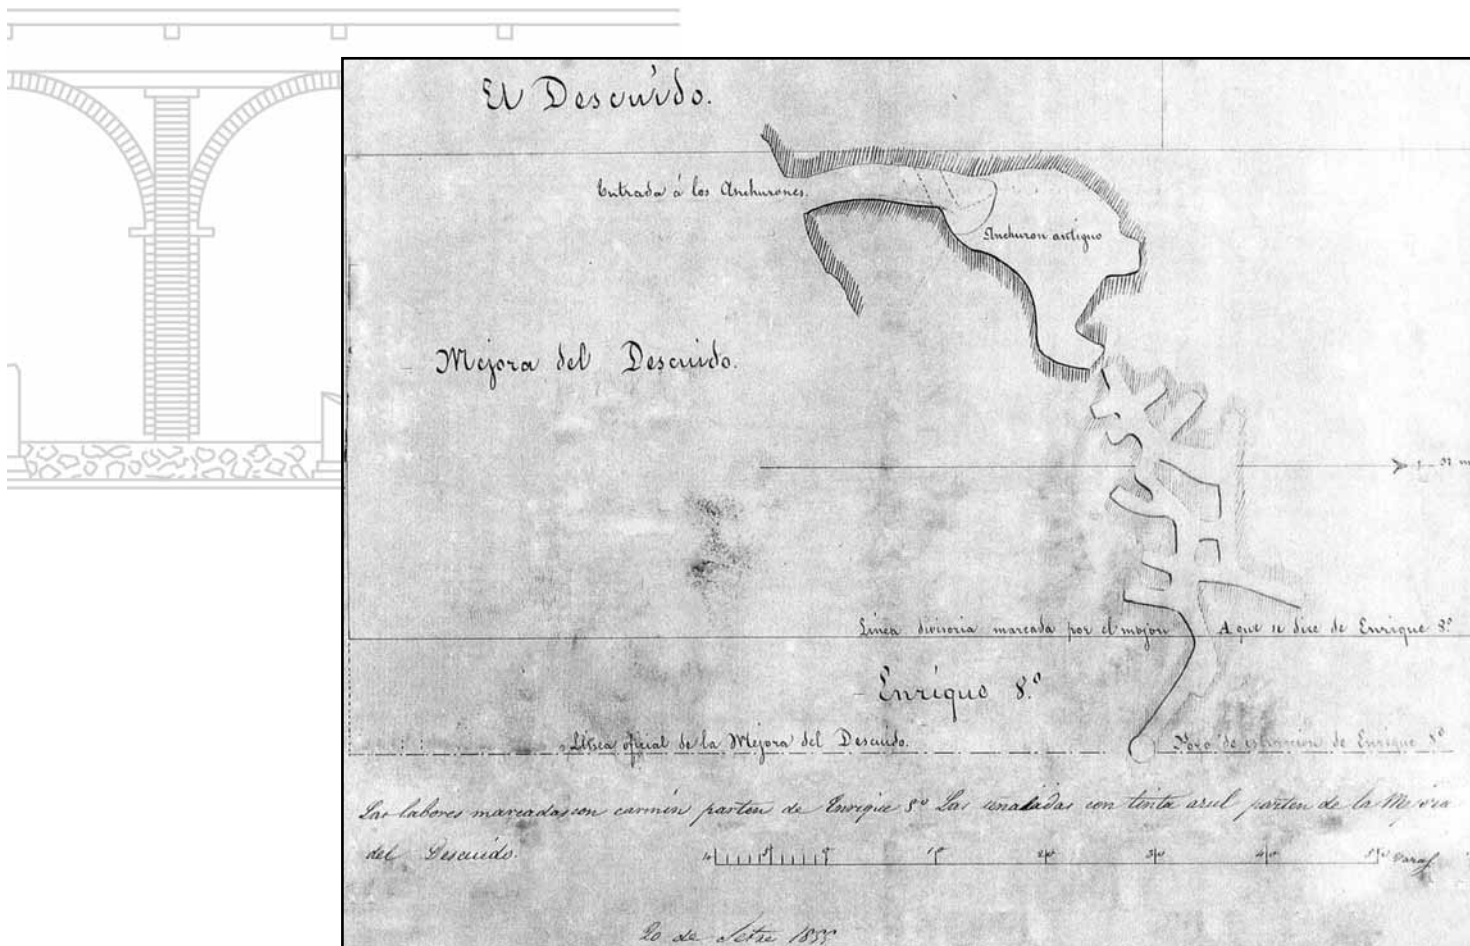 El Descuido.
Entrada á los Anchurones.
Anchuron antiguo
Mejora del Descuido.
Linea divisoria marcada por el mojon A que se dice de Enrique 8.º
Enrique 8.º
Linea oficial de la Mejora del Descuido.
Pozo de estraccion de Enrique 8º
Las labores marcadas con carmin parten de Enrique 8º Las señaladas con tinta azul parten de la Mejora
del Descuido.
10 5 0 10 20 30 40 50 varas
20 de Setre